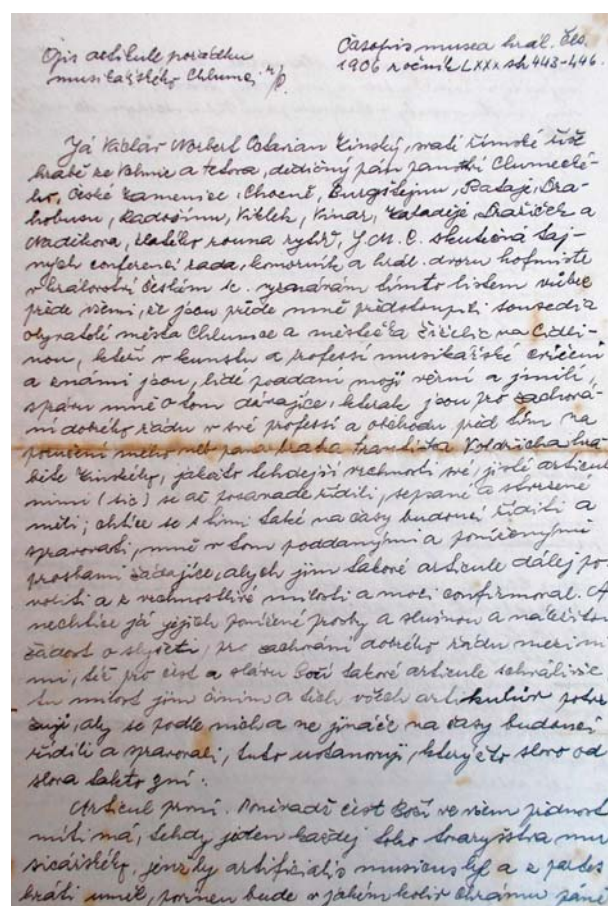 Opis artikule pořádku
musikářského Chlumci n/C.
Časopis musea král. čes.
1906 ročník LXXX str 443-446.
Já Václav Norbert Octavian Kinský, svaté římské říše
hrabě ze Vchinic a Tetova, dědičný pán panství Chlumecké-
ho, České Kamenice, Chocně, Burgštejnu, Rataje, Dra-
hobusu, Radošínu, Vlklek, Vinar, Zaraděje, Dražiček a
Nadějkova, zlatého rouna rytíř, J. M. C. skutečná taj-
ných conferencí rada, komorník a král. dvoru hofmistr
v království českém etc. vyznávám tímto listem vůbec
přede všemi, že jsou přede mně předstoupili sousedia
obyvatelé města Chlumce a městečka Žiželic nad Cidli-
nou, kteří v kunstu a professí musikářské cvičení
a známí jsou, lidé poddaní moji věrní a jimilí,
správu mně o tom dávajíce, kterak jsou pro zachová-
ní dobrého řádu v své professi a obchodu před tím na
poručení mého pana hraběte Františka Voldřicha hra-
běte Kinského, jakožto tehdejší vrchnosti své, jisté articule
nimi (sic) se až posavade řídili, sepsané a stvrzené
měli; chtíce se s nimi také na časy budoucí říditi a
spravovati, mně v tom poddanými a poníženými
prosbami žádajíce, abych jim takové articule dálej po-
volíti a z vrchnostlivé milosti a moci confirmoval. A
nechtíce já jejich ponížené prosby a slušnou a náležitou
žádost oslyšeti, pro zachování dobrého řádu mezi ni-
mi, též pro čest a slávu Boží takové articule schválivše
tu milost jim činím a těch všech artikulův potvr-
zuji, aby se podle nich a ne jináče na časy budoucí
řídili a spravovali, tuto ustanovuji, kterýžto slovo od
slova takto zní:
Articul první. Poněvadž čest Boží ve všem přednost
míti má, tehdy jeden každej toho tovaryšstva mu-
sicářského, jenž by artificialis musicus byl a z partes
hráti uměl, povinen bude v jakémkoliv chrámu páně